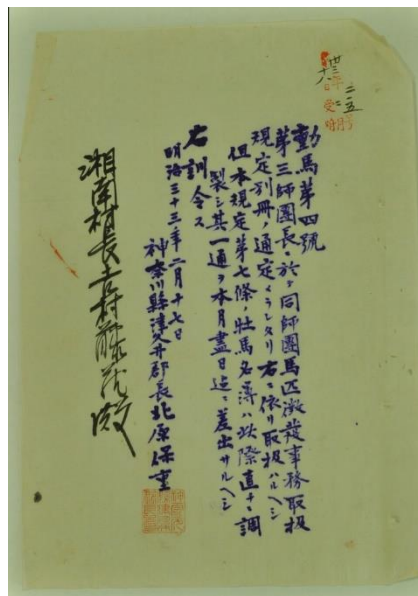 動馬第四號
第三師團長ニ於テ同師團馬匹徴發事務取扱
規定別冊ノ通定メラレタリ右ニ依リ取扱ハルヘシ
但本規定第七條ノ牡馬名簿ハ此際直チニ調
製シ其一通ヲ本月盡日迄ニ差出サルヘシ
右訓令ス
明治三十三年二月十七日
神奈川縣津久井郡長北原保重
湘南村長吉村藤